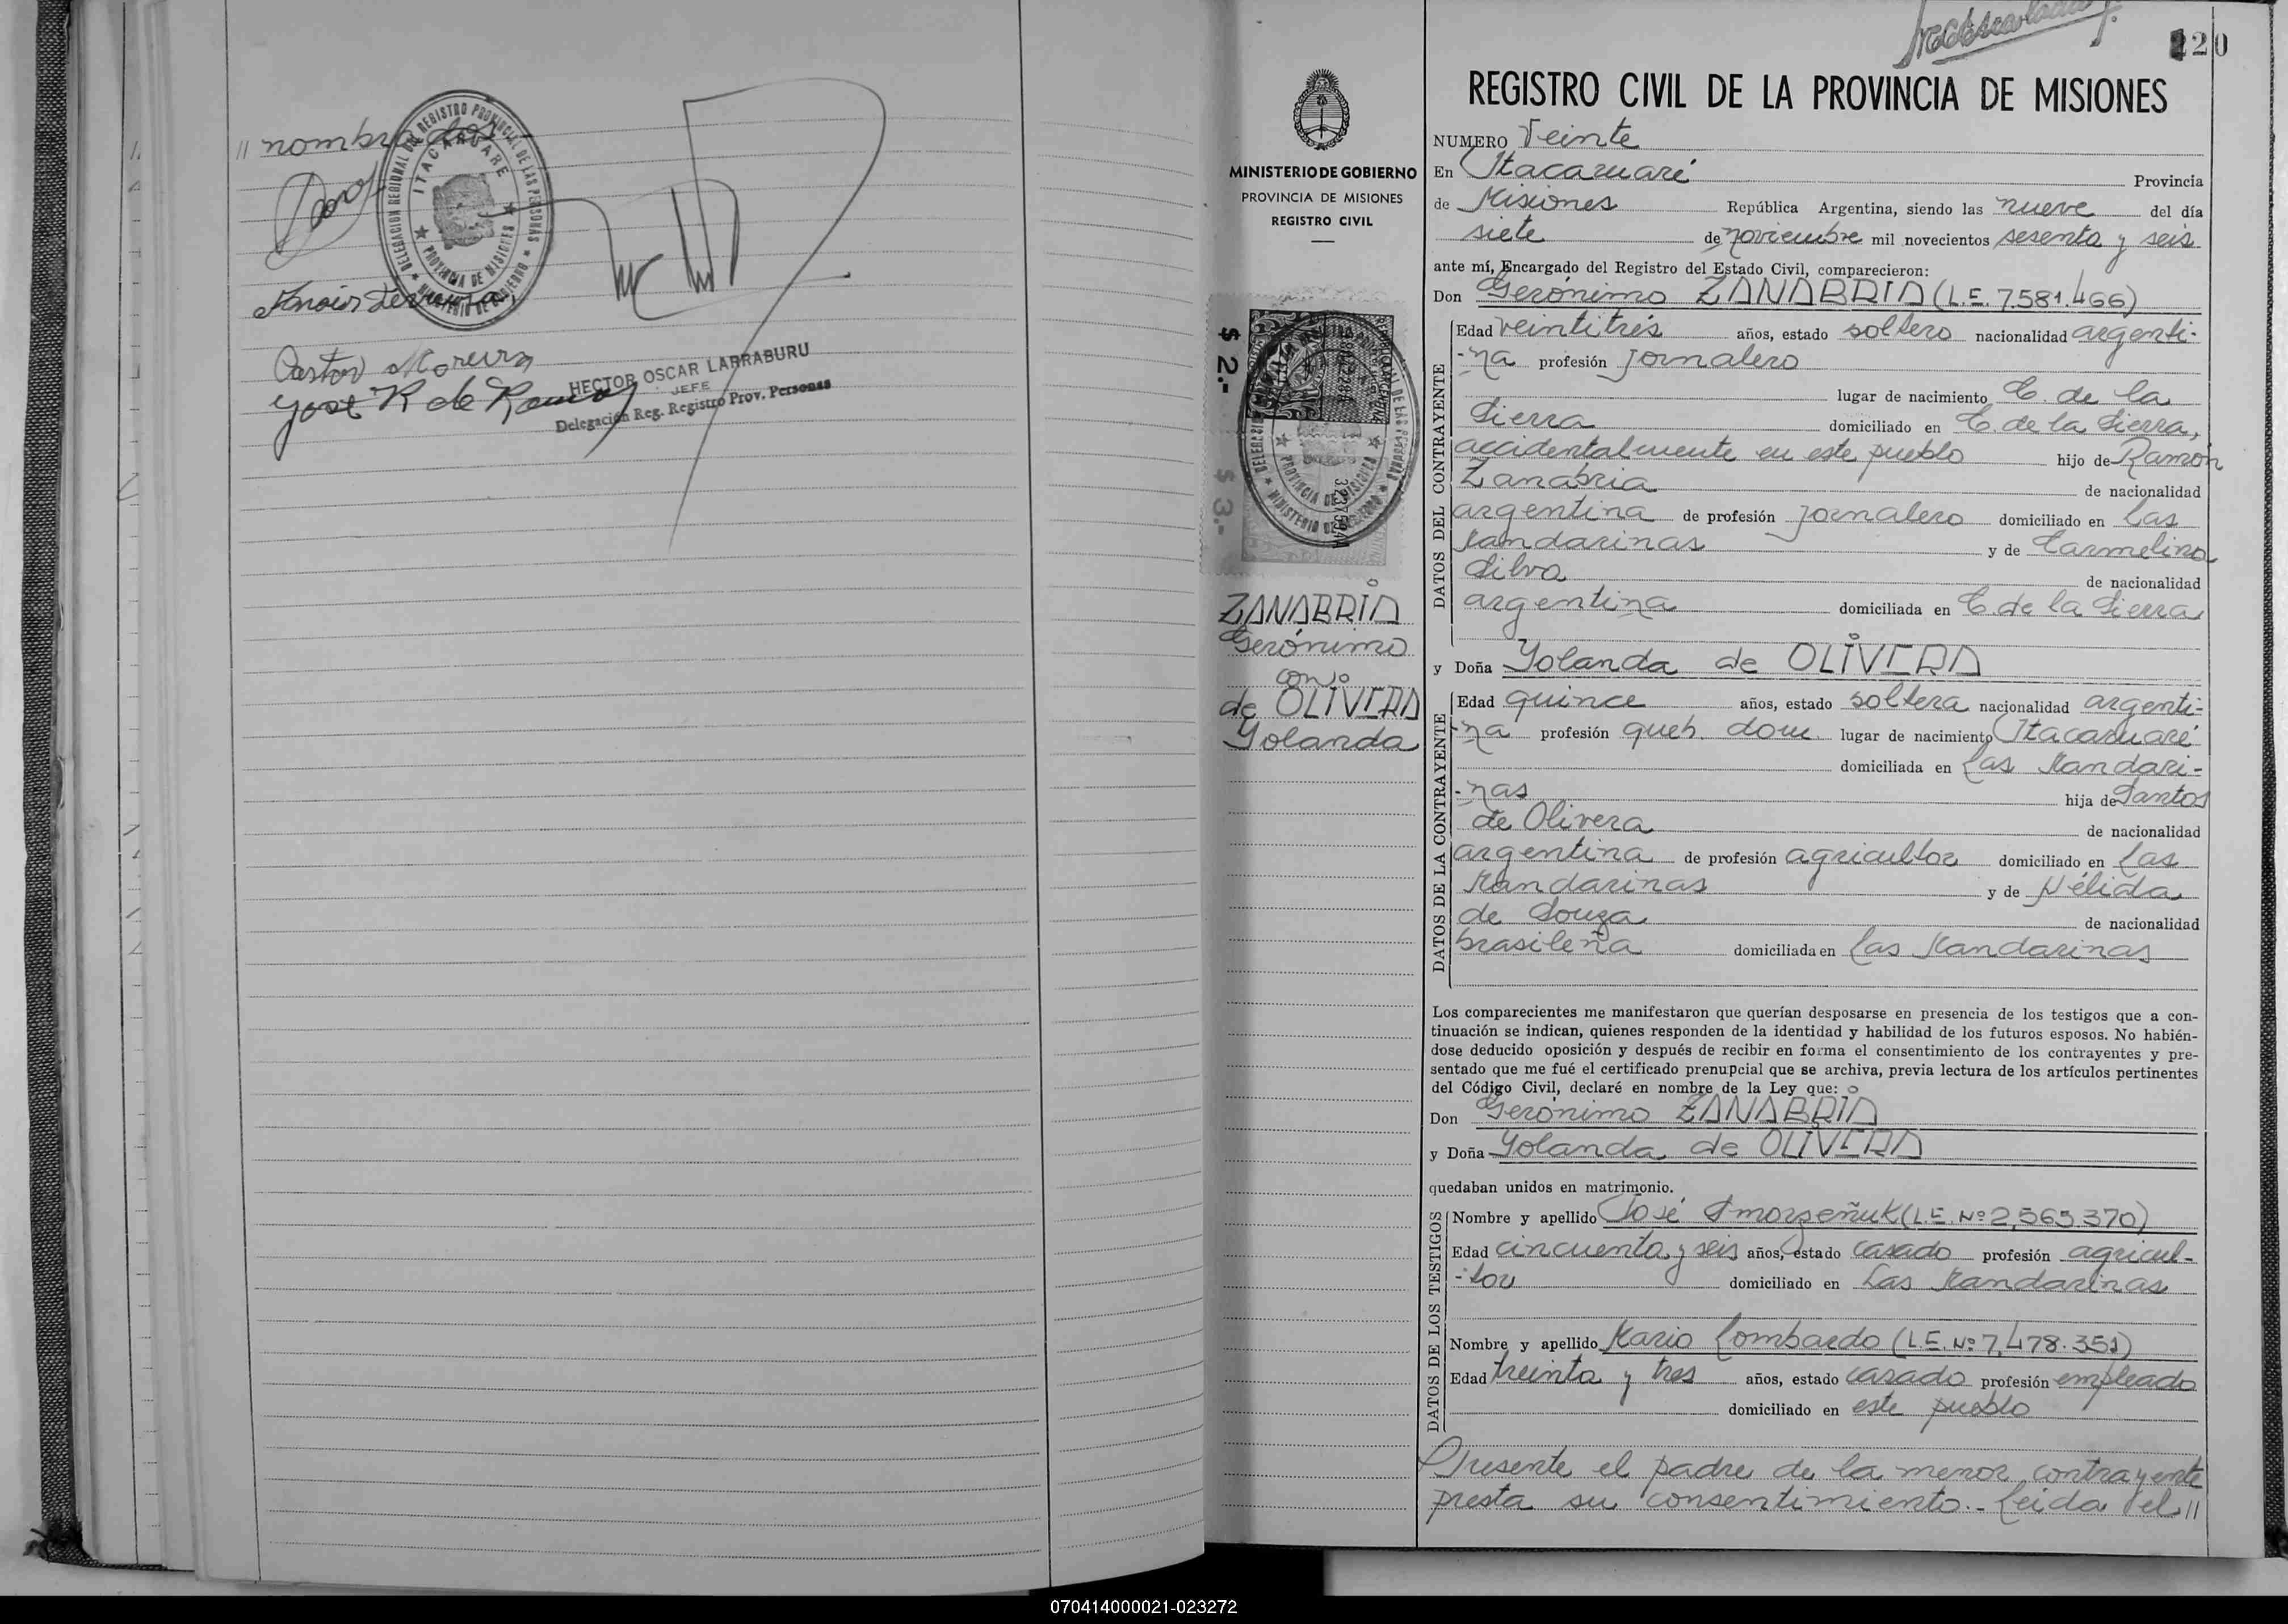 // nombrados
DELEGACION REGIONAL DEL REGISTRO PROVINCIAL DE LAS PERSONAS
ITACARUARE
PROVINCIA DE MISIONES
MINISTERIO DE GOBIERNO
Castor Moreira
José R de Ramos
HECTOR OSCAR LARRABURU
JEFE
Delegación Reg. Registro Prov. Personas
MINISTERIO DE GOBIERNO
PROVINCIA DE MISIONES
REGISTRO CIVIL
$ 2.-
$ 3.-
ZANABRIA
Gerónimo
con
de OLIVERA
Yolanda
220
REGISTRO CIVIL DE LA PROVINCIA DE MISIONES
NUMERO Veinte
En Itacaruaré Provincia
de Misiones República Argentina, siendo las nueve del día
siete de noviembre mil novecientos sesenta y seis
ante mí, Encargado del Registro del Estado Civil, comparecieron:
Don Gerónimo ZANABRIA (L.E. 7.581.466)
DATOS DEL CONTRAYENTE
Edad veintitrés años, estado soltero nacionalidad argenti-
-na profesión jornalero
lugar de nacimiento C. de la
Sierra domiciliado en C. de la Sierra,
accidentalmente en este pueblo hijo de Ramón
Zanabria de nacionalidad
argentina de profesión jornalero domiciliado en Las
Mandarinas y de Carmelina
Silva de nacionalidad
argentina domiciliada en C. de la Sierra
y Doña Yolanda de OLIVERA
DATOS DE LA CONTRAYENTE
Edad quince años, estado soltera nacionalidad argenti-
-na profesión queh. dom. lugar de nacimiento Itacaruaré
domiciliada en Las Mandari-
-nas hija de Santos
de Olivera de nacionalidad
argentina de profesión agricultor domiciliado en Las
Mandarinas y de Nélida
de Souza de nacionalidad
brasileña domiciliada en Las Mandarinas
Los comparecientes me manifestaron que querían desposarse en presencia de los testigos que a con-
tinuación se indican, quienes responden de la identidad y habilidad de los futuros esposos. No habién-
dose deducido oposición y después de recibir en forma el consentimiento de los contrayentes y pre-
sentado que me fué el certificado prenupcial que se archiva, previa lectura de los artículos pertinentes
del Código Civil, declaré en nombre de la Ley que:
Don Gerónimo ZANABRIA
y Doña Yolanda de OLIVERA
quedaban unidos en matrimonio.
DATOS DE LOS TESTIGOS
Nombre y apellido José Smorzeñuk (L.E. Nº 2,565.370)
Edad cincuenta y seis años, estado casado profesión agricul-
-tor domiciliado en Las Mandarinas
Nombre y apellido Mario Lombardo (L.E. Nº 7.478.351)
Edad treinta y tres años, estado casado profesión empleado
domiciliado en este pueblo
Presente el padre de la menor contrayente
presta su consentimiento.- Leida el //
070414000021-023272